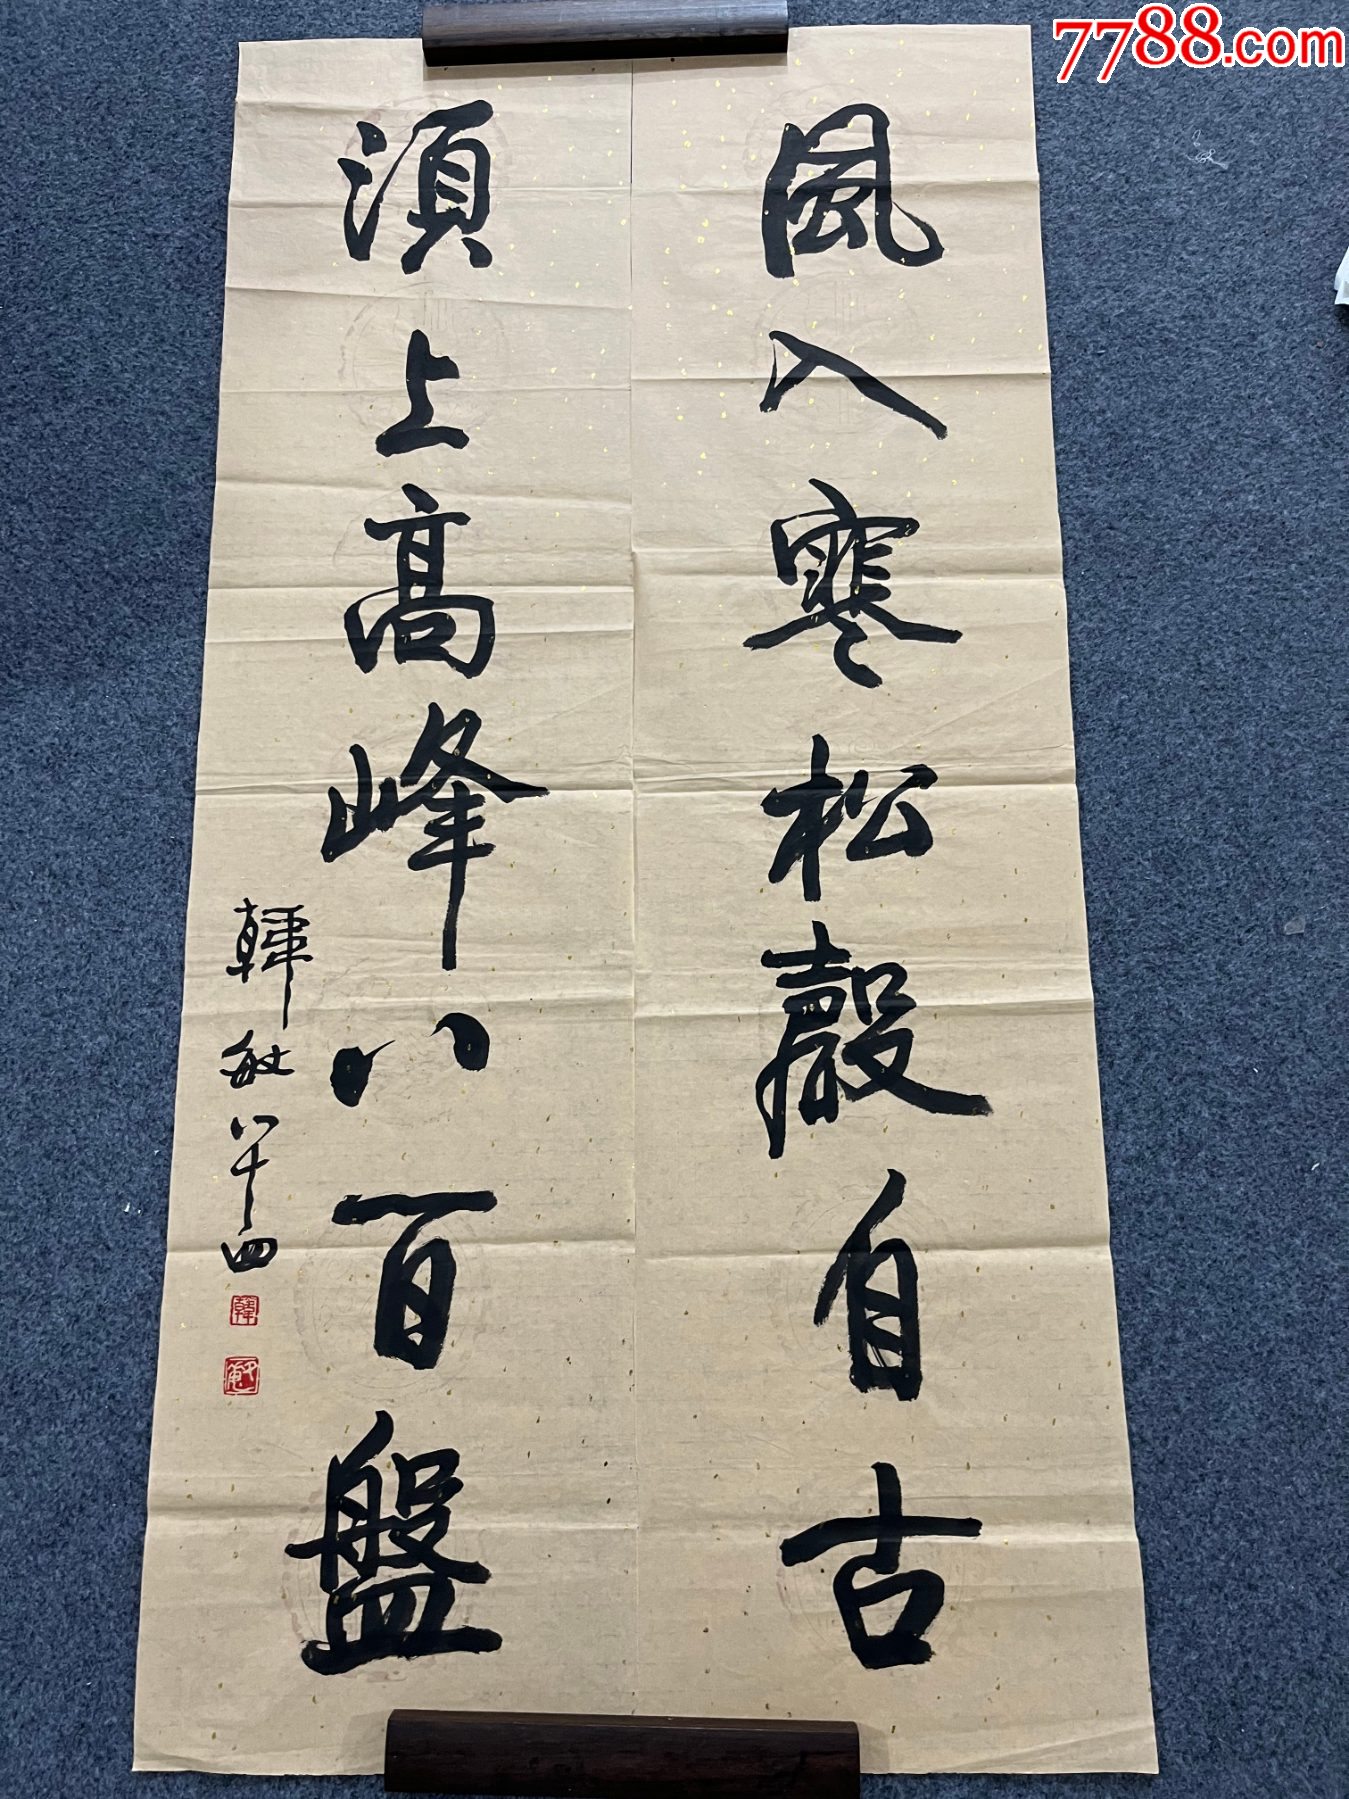 7788.com
風入寒松聲自古
須上高峰八百盤
韓敏八十四
韓